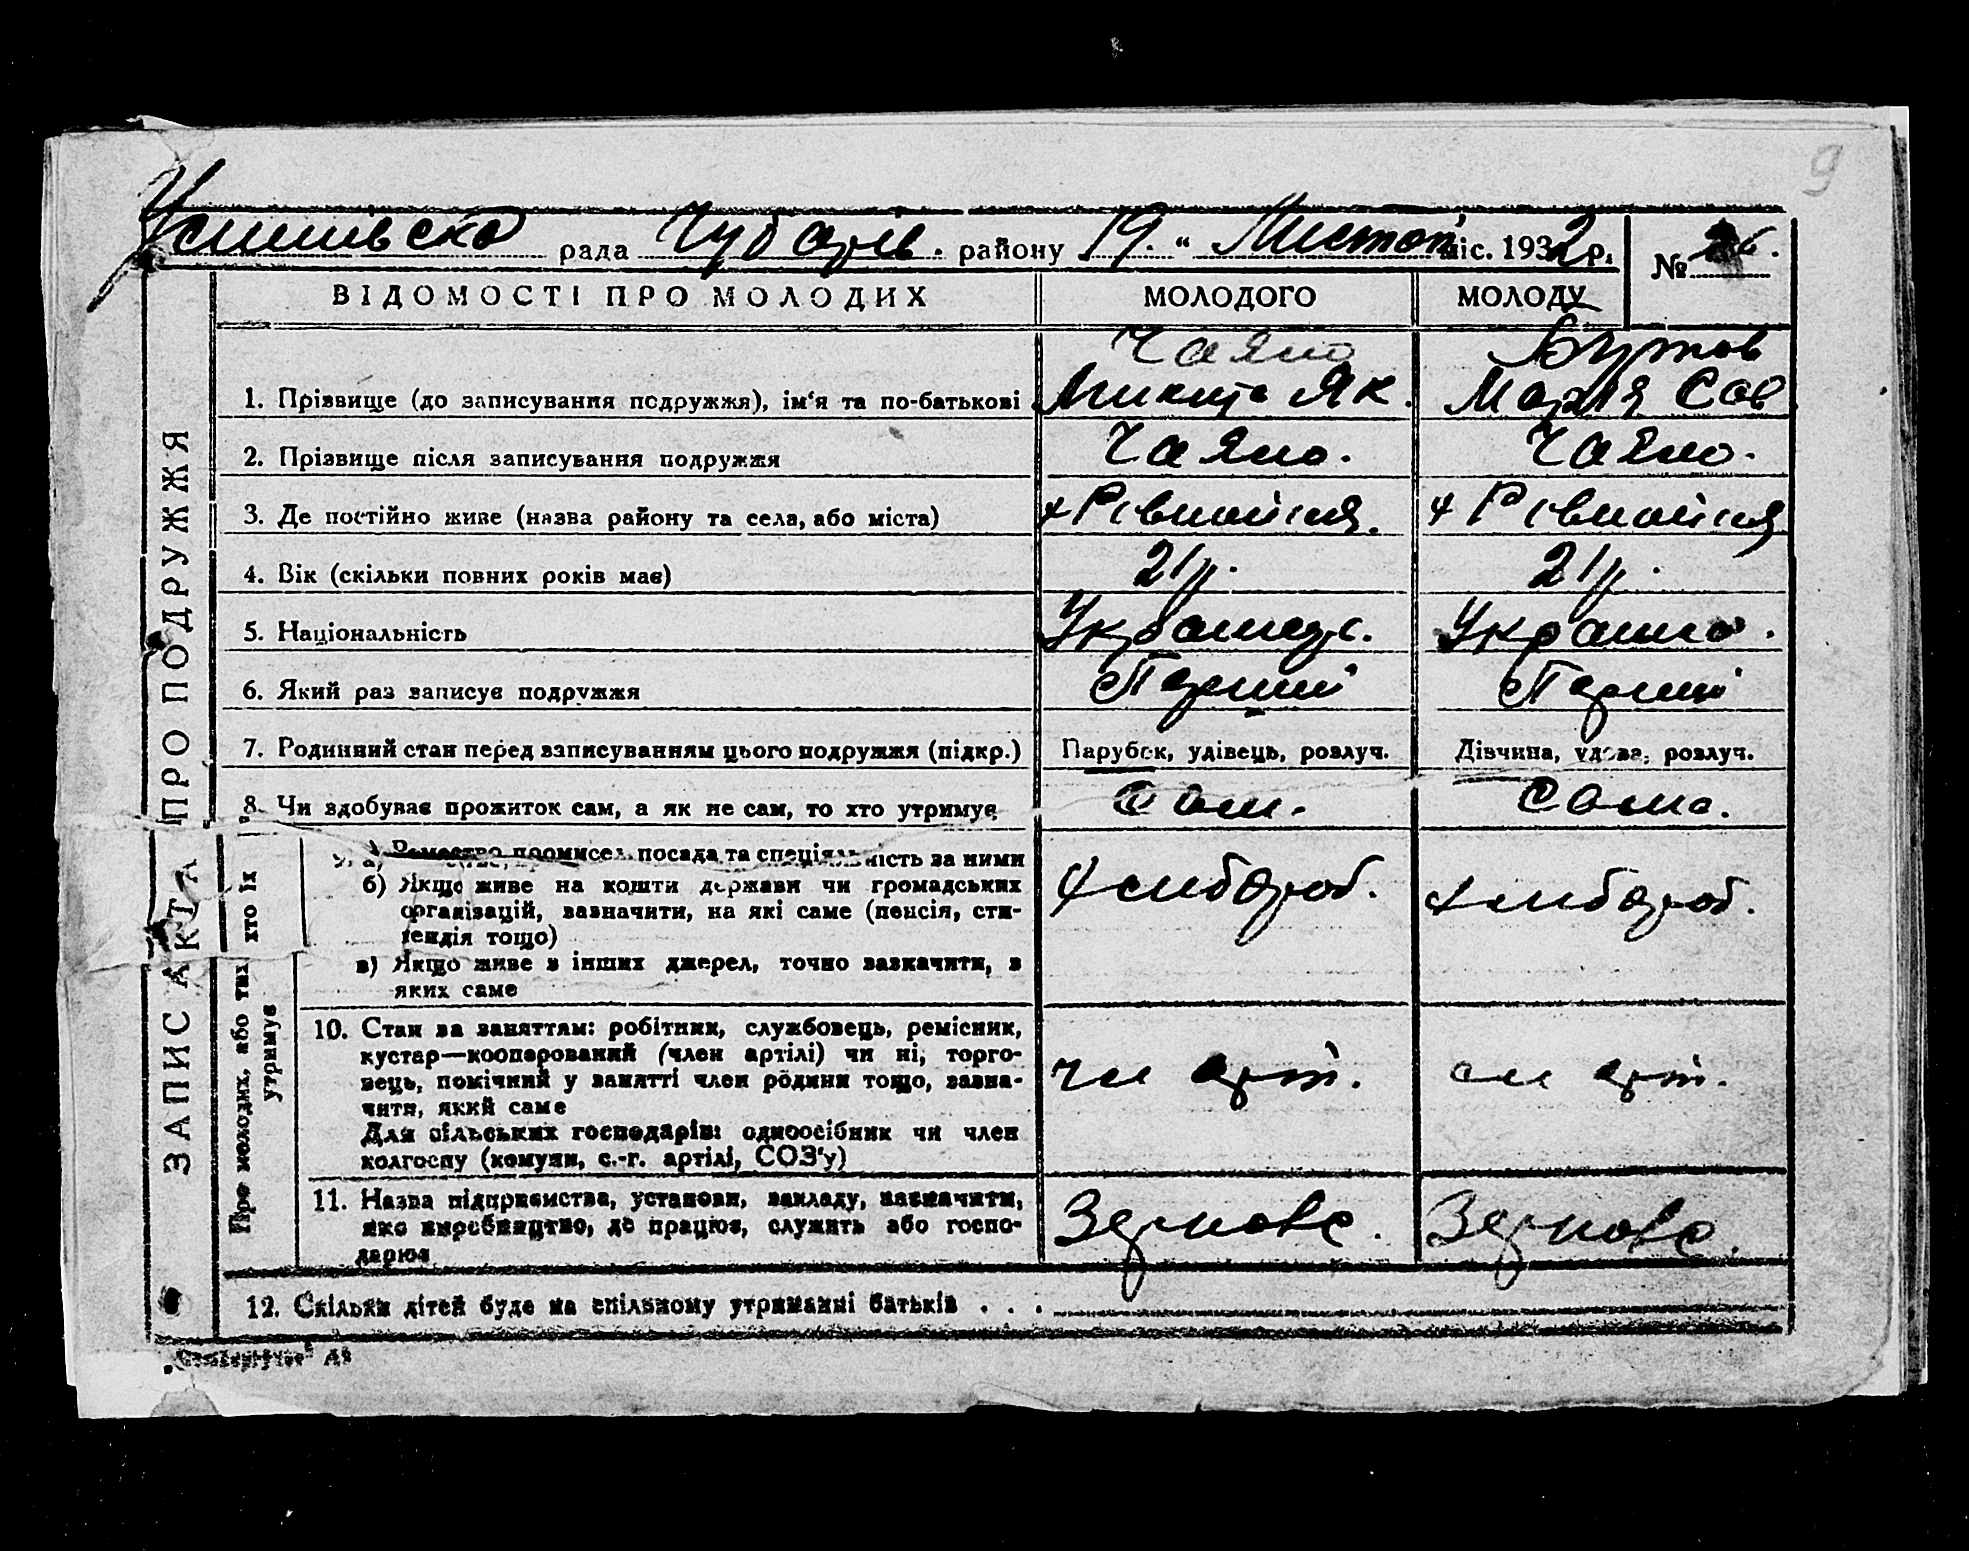 9
рада Чубарів. району 19. " Листоп міс. 1932 р. №
ВІДОМОСТІ ПРО МОЛОДИХ МОЛОДОГО МОЛОДУ
ЗАПИС АКТА ПРО ПОДРУЖЖЯ
1. Прізвище (до записування подружжя), ім'я та по-батькові Микита Як. Марія Сав
2. Прізвище після записування подружжя
3. Де постійно живе (назва району та села, або міста)
4. Вік (скільки повних років має) 21 р. 21 р.
5. Національність Українец. Українка.
6. Який раз записує подружжя Перший Перший
7. Родинний стан перед записуванням цього подружжя (підкр.) Парубок, удівець, розлуч. Дівчина, удова, розлуч.
8. Чи здобуває прожиток сам, а як не сам, то хто утримує Сам. Сама.
Про молодих, або тих хто їх утримує
9. а) Ремество, промисел, посада та спеціяльність за ними
б) Якщо живе на кошти держави чи громадських
організацій, зазначити, на які саме (пенсія, сти-
пендія тощо)
Хлібороб. Хлібороб.
в) Якщо живе з інших джерел, точно зазначити, з
яких саме
10. Стан за заняттям: робітник, службовець, ремісник,
кустар—кооперований (член артілі) чи ні, торго-
вець, помічний у занятті член родини тощо, зазна-
чити, який саме
Для сільських господарів: одноосібник чи член
колгоспу (комуни, с.-г. артілі, СОЗ'у)
чл арт. чл арт.
11. Назва підприємства, установи, закладу, зазначити,
яке виробництво, де працює, служить або госпо-
дарює
Зернове. Зернове.
12. Скільки дітей буде на спільному утриманні батьків . . .